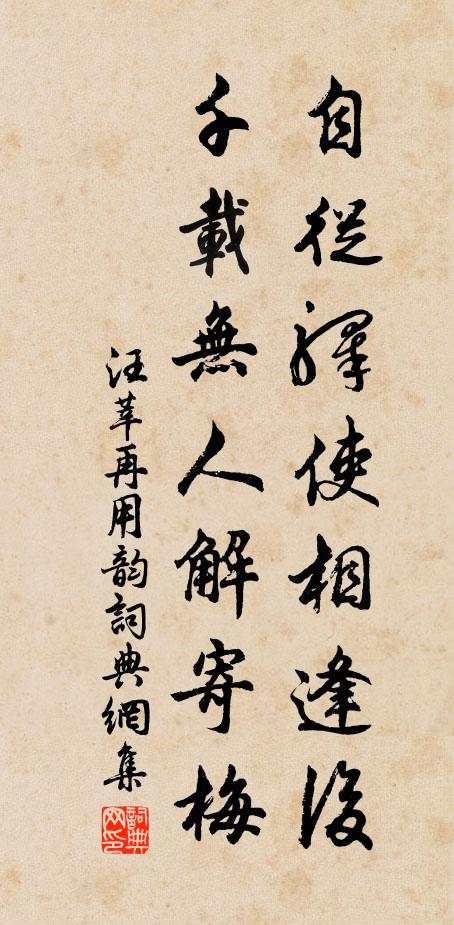 自從驛使相逢後
千載無人解寄梅
汪莘再用韵詞典網集
詞典网印